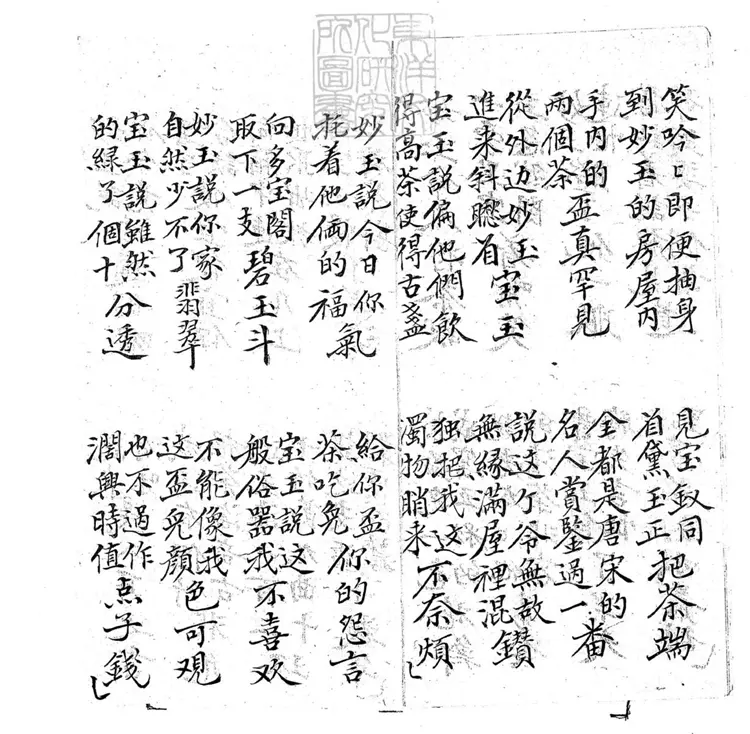 東洋文化研究所圖書
笑吟〻即便抽身
到妙玉的房屋内
見宝釵同
首黛玉正
把茶端
手内的
兩個茶
盃真罕見
全都是唐宋的
名人賞鑒過一番
從外边妙玉
進来斜聴首
宝玉
説这个爷無故
無縁滿屋裡混鑽
宝玉説偏他們飲
得高茶使得古盞
独把我这
濁物睄来
不奈煩
妙玉説今日你
托着他俩的
福氣
給你盃
茶吃免
你的怨言
向多宝閣
取下一支
碧玉斗
宝玉説这
般俗器我
不喜欢
妙玉説你家
自然少不了
翡翠
不能像我
这盃兒顔
色可观
宝玉説雖然
的緑了個十
分透
也不過作
濶興時值
点子錢